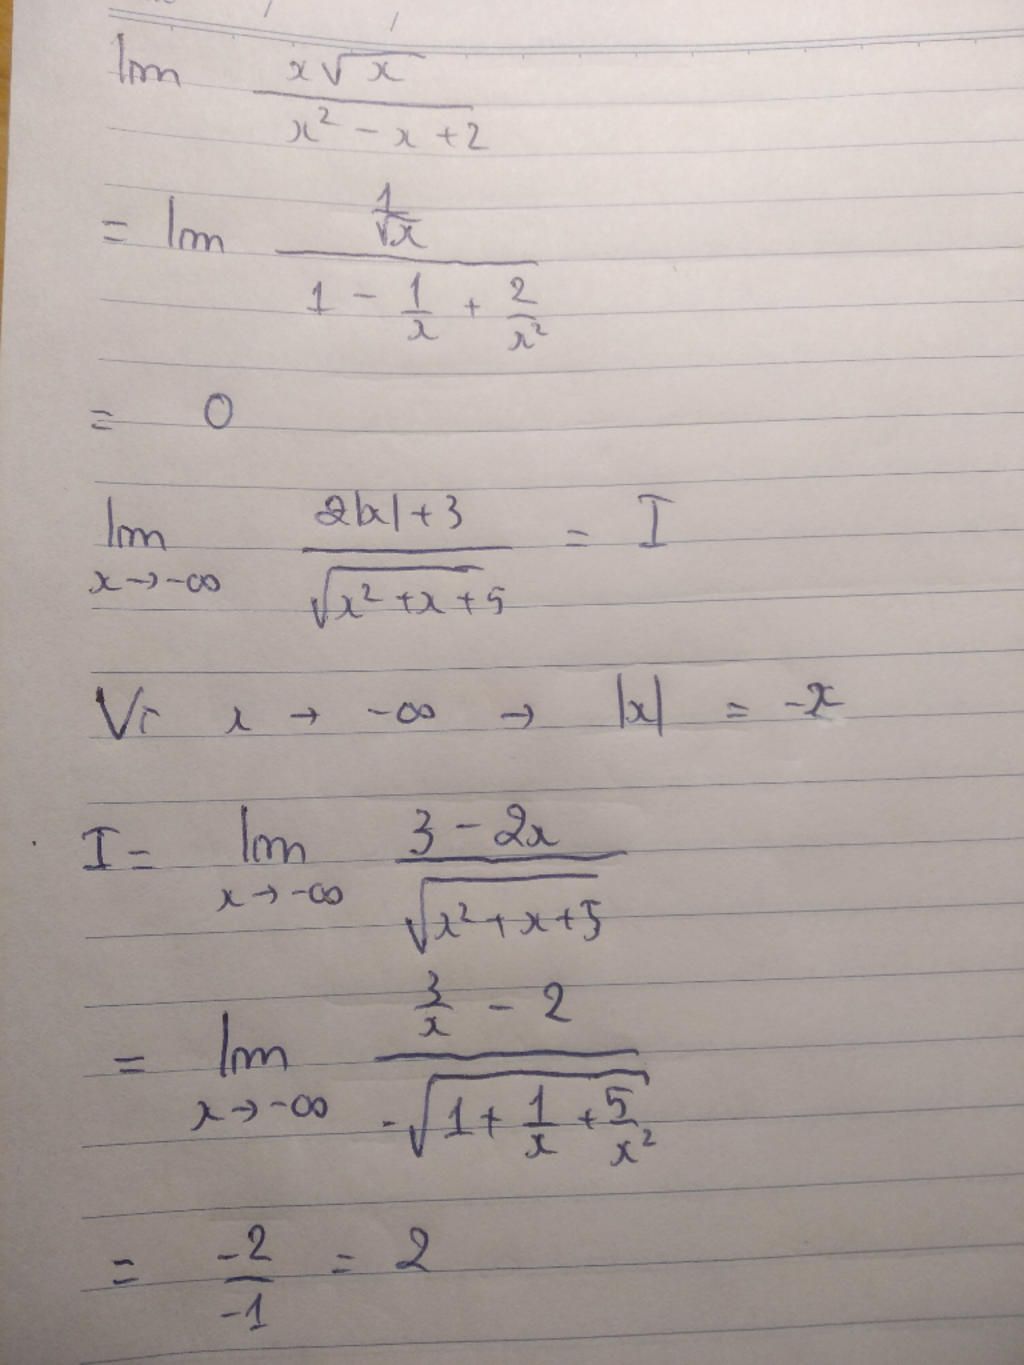 lim x√x / x² - x + 2
= lim 1/√x / 1 - 1/x + 2/x²
= 0
lim x→-∞ 2|x|+3 / √x²+x+5 = I
Vì x → -∞ → |x| = -x
I = lim x→-∞ 3 - 2x / √x²+x+5
= lim x→-∞ 3/x - 2 / -√1 + 1/x + 5/x²
= -2/-1 = 2